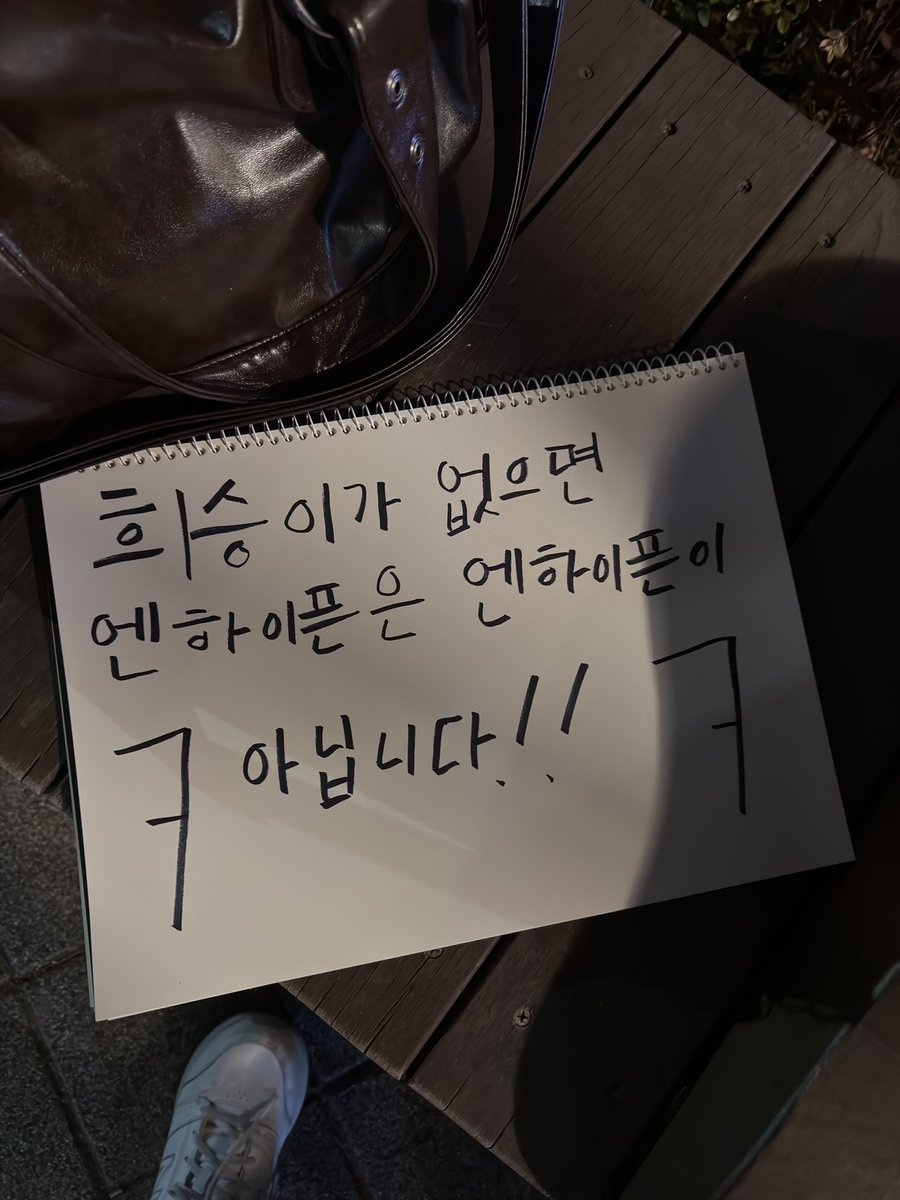 희승이가 없으면
엔하이픈은 엔하이픈이
7 아닙니다!! 7